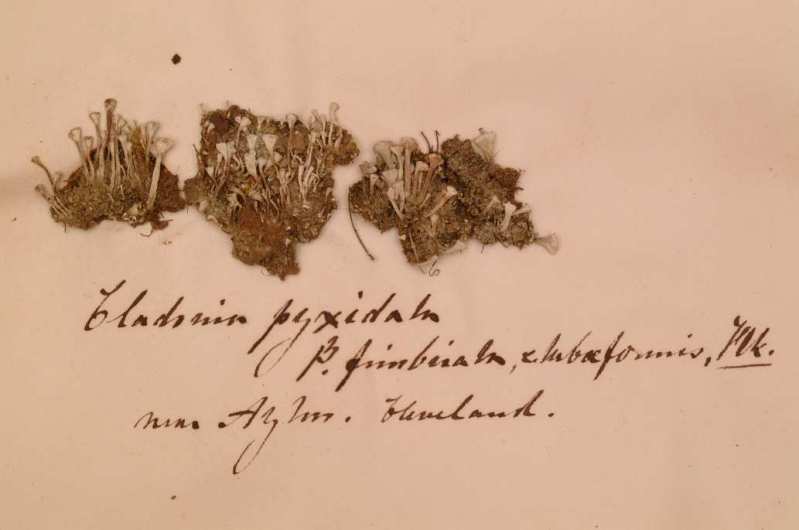 Cladonia pyxidata
β. fimbriata, α tubæformis, Flk.
near Ayton. Cleveland.